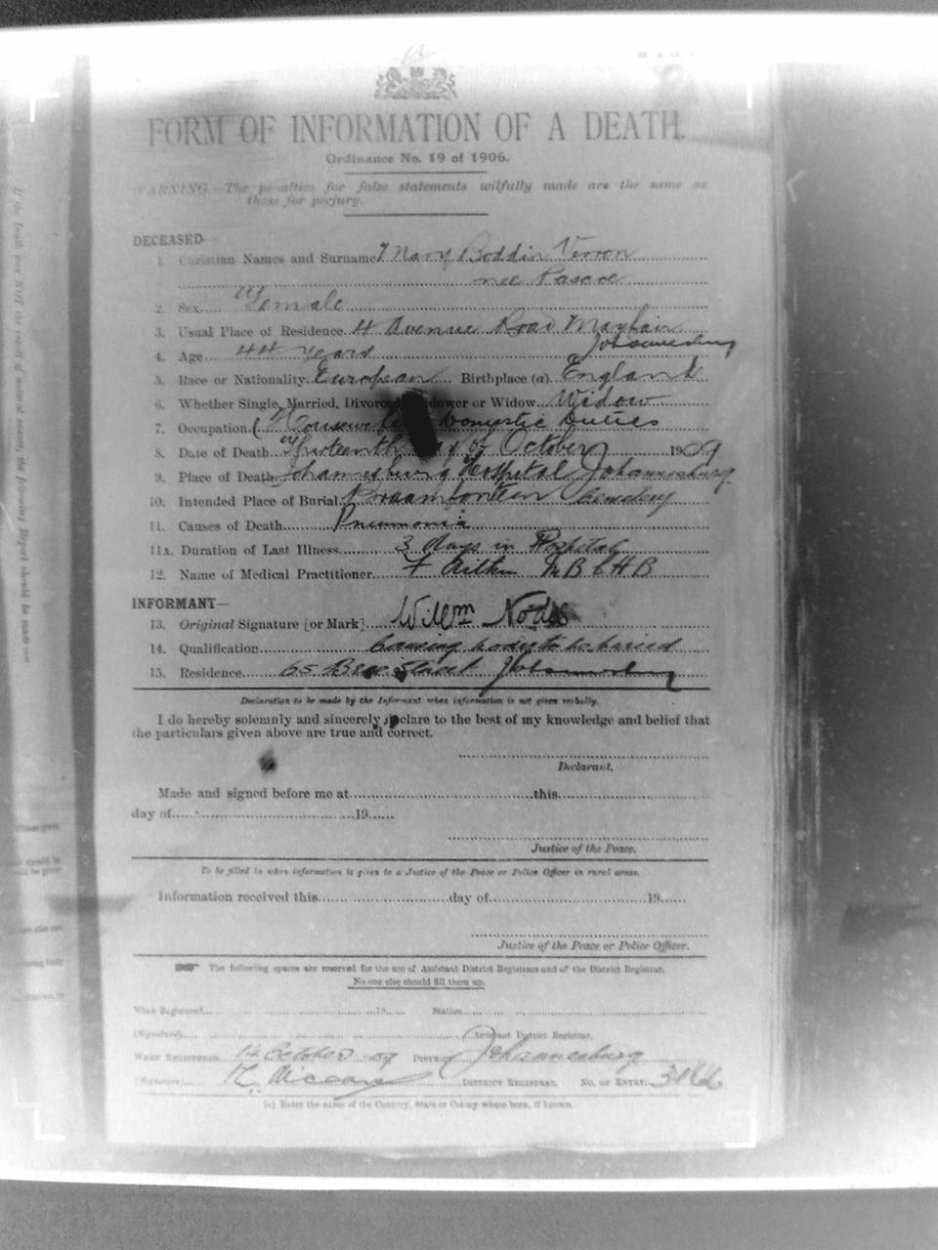 FORM OF INFORMATION OF A DEATH.
Ordinance No. 19 of 1906.
WARNING.—The penalties for false statements wilfully made are the same as
those for perjury.
DECEASED—
1. Christian Names and Surname Mary Boddin Verron
nee Pascoe
2. Sex Female
3. Usual Place of Residence. 4 Avenue Road Mayfair
Johannesburg
4. Age 44 years
5. Race or Nationality. European Birthplace (a) England
6. Whether Single, Married, Divorced, Widower or Widow. Widow
7. Occupation. Domestic Duties
8. Date of Death Thirteenth day of October 1909
9. Place of Death Johannesburg Hospital Johannesburg
10. Intended Place of Burial: Braamfontein Cemetery
11. Causes of Death Pneumonia
11A. Duration of Last Illness 3 days in Hospital
12. Name of Medical Practitioner F Aitken MB
INFORMANT—
13. Original Signature [or Mark] Willm Nodes
14. Qualification Causing body to be buried
15. Residence. 65 Bree Street Johannesburg
Declaration to be made by the Informant when information is not given verbally.
I do hereby solemnly and sincerely declare to the best of my knowledge and belief that
the particulars given above are true and correct.
Declarant.
Made and signed before me at this
day of 19
Justice of the Peace.
To be filled in when information is given to a Justice of the Peace or Police Officer in rural areas.
Information received this day of 19
Justice of the Peace or Police Officer.
The following spaces are reserved for the use of Assistant District Registrars and of the District Registrar.
No one else should fill them up.
When Registered 19 Station
(Signature) Assistant District Registrar.
When Registered 14 October 09 District Johannesburg
(Signature) District Registrar. No. of Entry
(a) Enter the name of the Country, State or Colony where born, if known.